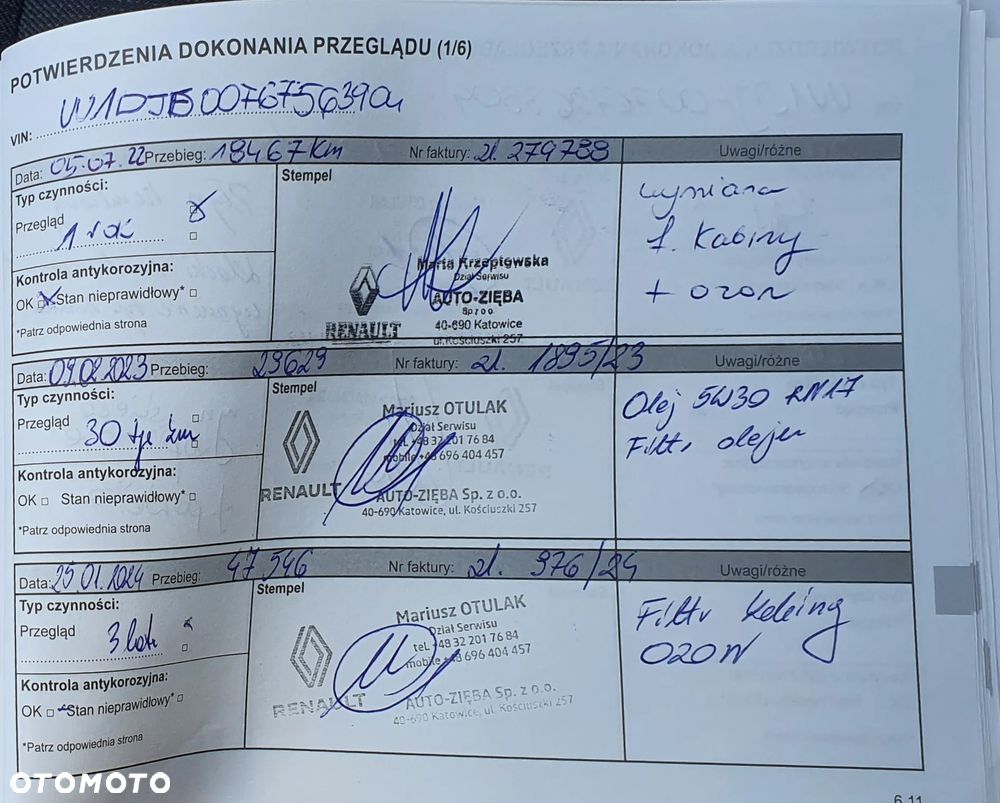 POTWIERDZENIA DOKONANIA PRZEGLĄDU (1/6)
VIN:
Data: 05.07.22 Przebieg: 18467 Km Nr faktury: zl. 279788 Uwagi/różne
Typ czynności:
Przegląd
1 rok
Kontrola antykorozyjna:
OK Stan nieprawidłowy*
*Patrz odpowiednia strona
Stempel
Marta Krzeptowska
Dział Serwisu
AUTO-ZIĘBA
Sp z o o
40-690 Katowice
ul.Kościuszki 257
RENAULT
wymiana
f. Kabiny
+ ozon
Data: 09.02.2023 Przebieg: 29629 Nr faktury: zl. 1895/23 Uwagi/różne
Typ czynności:
Przegląd
30 tyś km
Kontrola antykorozyjna:
OK Stan nieprawidłowy*
*Patrz odpowiednia strona
Stempel
Mariusz OTULAK
Dział Serwisu
tel. +48 32 201 76 84
mobile +48 696 404 457
RENAULT
AUTO-ZIĘBA Sp. z o.o.
40-690 Katowice, ul. Kościuszki 257
Olej 5W30 RN17
Filtr oleju
Data: 25.01.2024 Przebieg: 47 546 Nr faktury: zl. 976/24 Uwagi/różne
Typ czynności:
Przegląd
3 lata
Kontrola antykorozyjna:
OK Stan nieprawidłowy*
*Patrz odpowiednia strona
Stempel
Mariusz OTULAK
Dział Serwisu
tel. +48 32 201 76 84
mobile +48 696 404 457
RENAULT
AUTO-ZIĘBA Sp. z o.o.
40-690 Katowice, ul. Kościuszki 257
Filtr kabiny
OZON
6.11
OTOMOTO